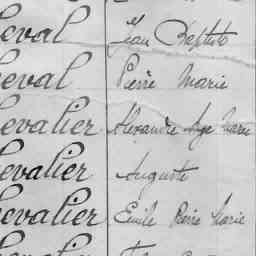 heval Jean Baptiste
heval Pierre Marie
hevalier Alexandre Marie
hevalier Auguste
hevalier Emile Pierre Marie
hevalier